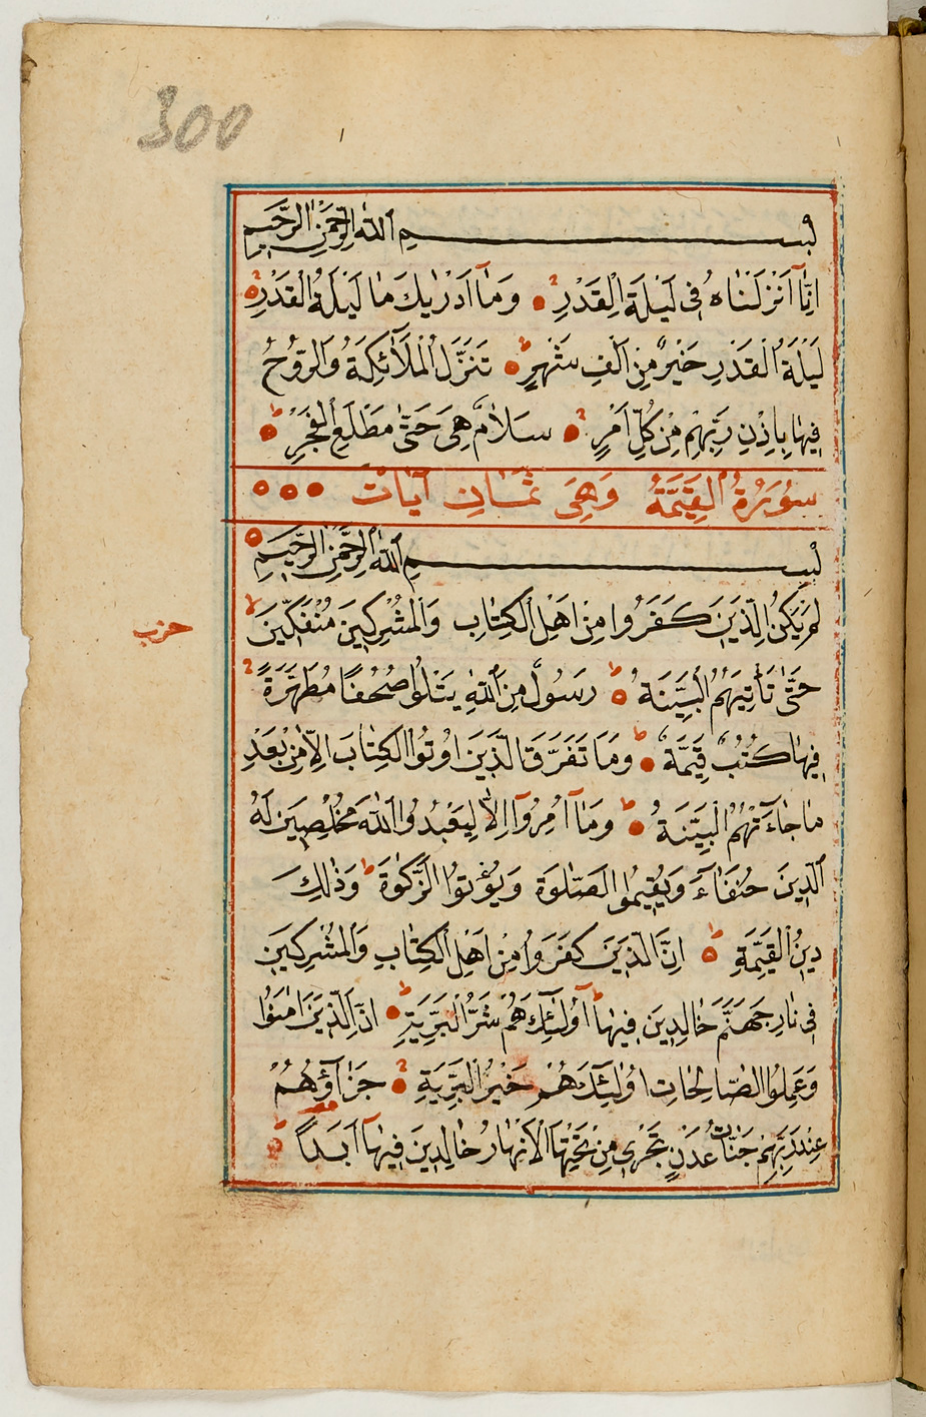 300
بِسْمِ اللّٰهِ الرَّحْمٰنِ الرَّحِيمِ
اِنَّٓا اَنْزَلْنَاهُ فِى لَيْلَةِ الْقَدْرِ وَمَٓا اَدْرٰيكَ مَا لَيْلَةُ الْقَدْرِ
لَيْلَةُ الْقَدْرِ خَيْرٌ مِنْ اَلْفِ شَهْرٍ تَنَزَّلُ الْمَلَٓائِكَةُ وَالرُّوحُ
فِيهَا بِاِذْنِ رَبِّهِمْ مِنْ كُلِّ اَمْرٍ سَلَامٌ هِىَ حَتّٰى مَطْلَعِ الْفَجْرِ
سُورَةُ الْقَيِّمَةُ وَهِىَ ثَمَانِ آيَاتْ
بِسْمِ اللّٰهِ الرَّحْمٰنِ الرَّحِيمِ
لَمْ يَكُنِ الَّذِينَ كَفَرُوا مِنْ اَهْلِ الْكِتَابِ وَالْمُشْرِكِينَ مُنْفَكِّينَ
حزب
حَتّٰى تَأْتِيَهُمُ الْبَيِّنَةُ رَسُولٌ مِنَ اللّٰهِ يَتْلُوا صُحُفًا مُطَهَّرَةً
فِيهَا كُتُبٌ قَيِّمَةٌ وَمَا تَفَرَّقَ الَّذِينَ اُوتُوا الْكِتَابَ اِلَّا مِنْ بَعْدِ
مَا جَٓاءَتْهُمُ الْبَيِّنَةُ وَمَٓا اُمِرُٓوا اِلَّا لِيَعْبُدُوا اللّٰهَ مُخْلِصِينَ لَهُ
الدِّينَ حُنَفَٓاءَ وَيُقِيمُوا الصَّلٰوةَ وَيُؤْتُوا الزَّكٰوةَ وَذٰلِكَ
دِينُ الْقَيِّمَةِ اِنَّ الَّذِينَ كَفَرُوا مِنْ اَهْلِ الْكِتَابِ وَالْمُشْرِكِينَ
فِى نَارِ جَهَنَّمَ خَالِدِينَ فِيهَٓا اُولٰٓئِكَ هُمْ شَرُّ الْبَرِيَّةِ اِنَّ الَّذِينَ اٰمَنُوا
وَعَمِلُوا الصَّالِحَاتِ اُولٰٓئِكَ هُمْ خَيْرُ الْبَرِيَّةِ جَزَٓاؤُهُمْ
عِنْدَ رَبِّهِمْ جَنَّاتُ عَدْنٍ تَجْرِى مِنْ تَحْتِهَا الْاَنْهَارُ خَالِدِينَ فِيهَٓا اَبَدًا